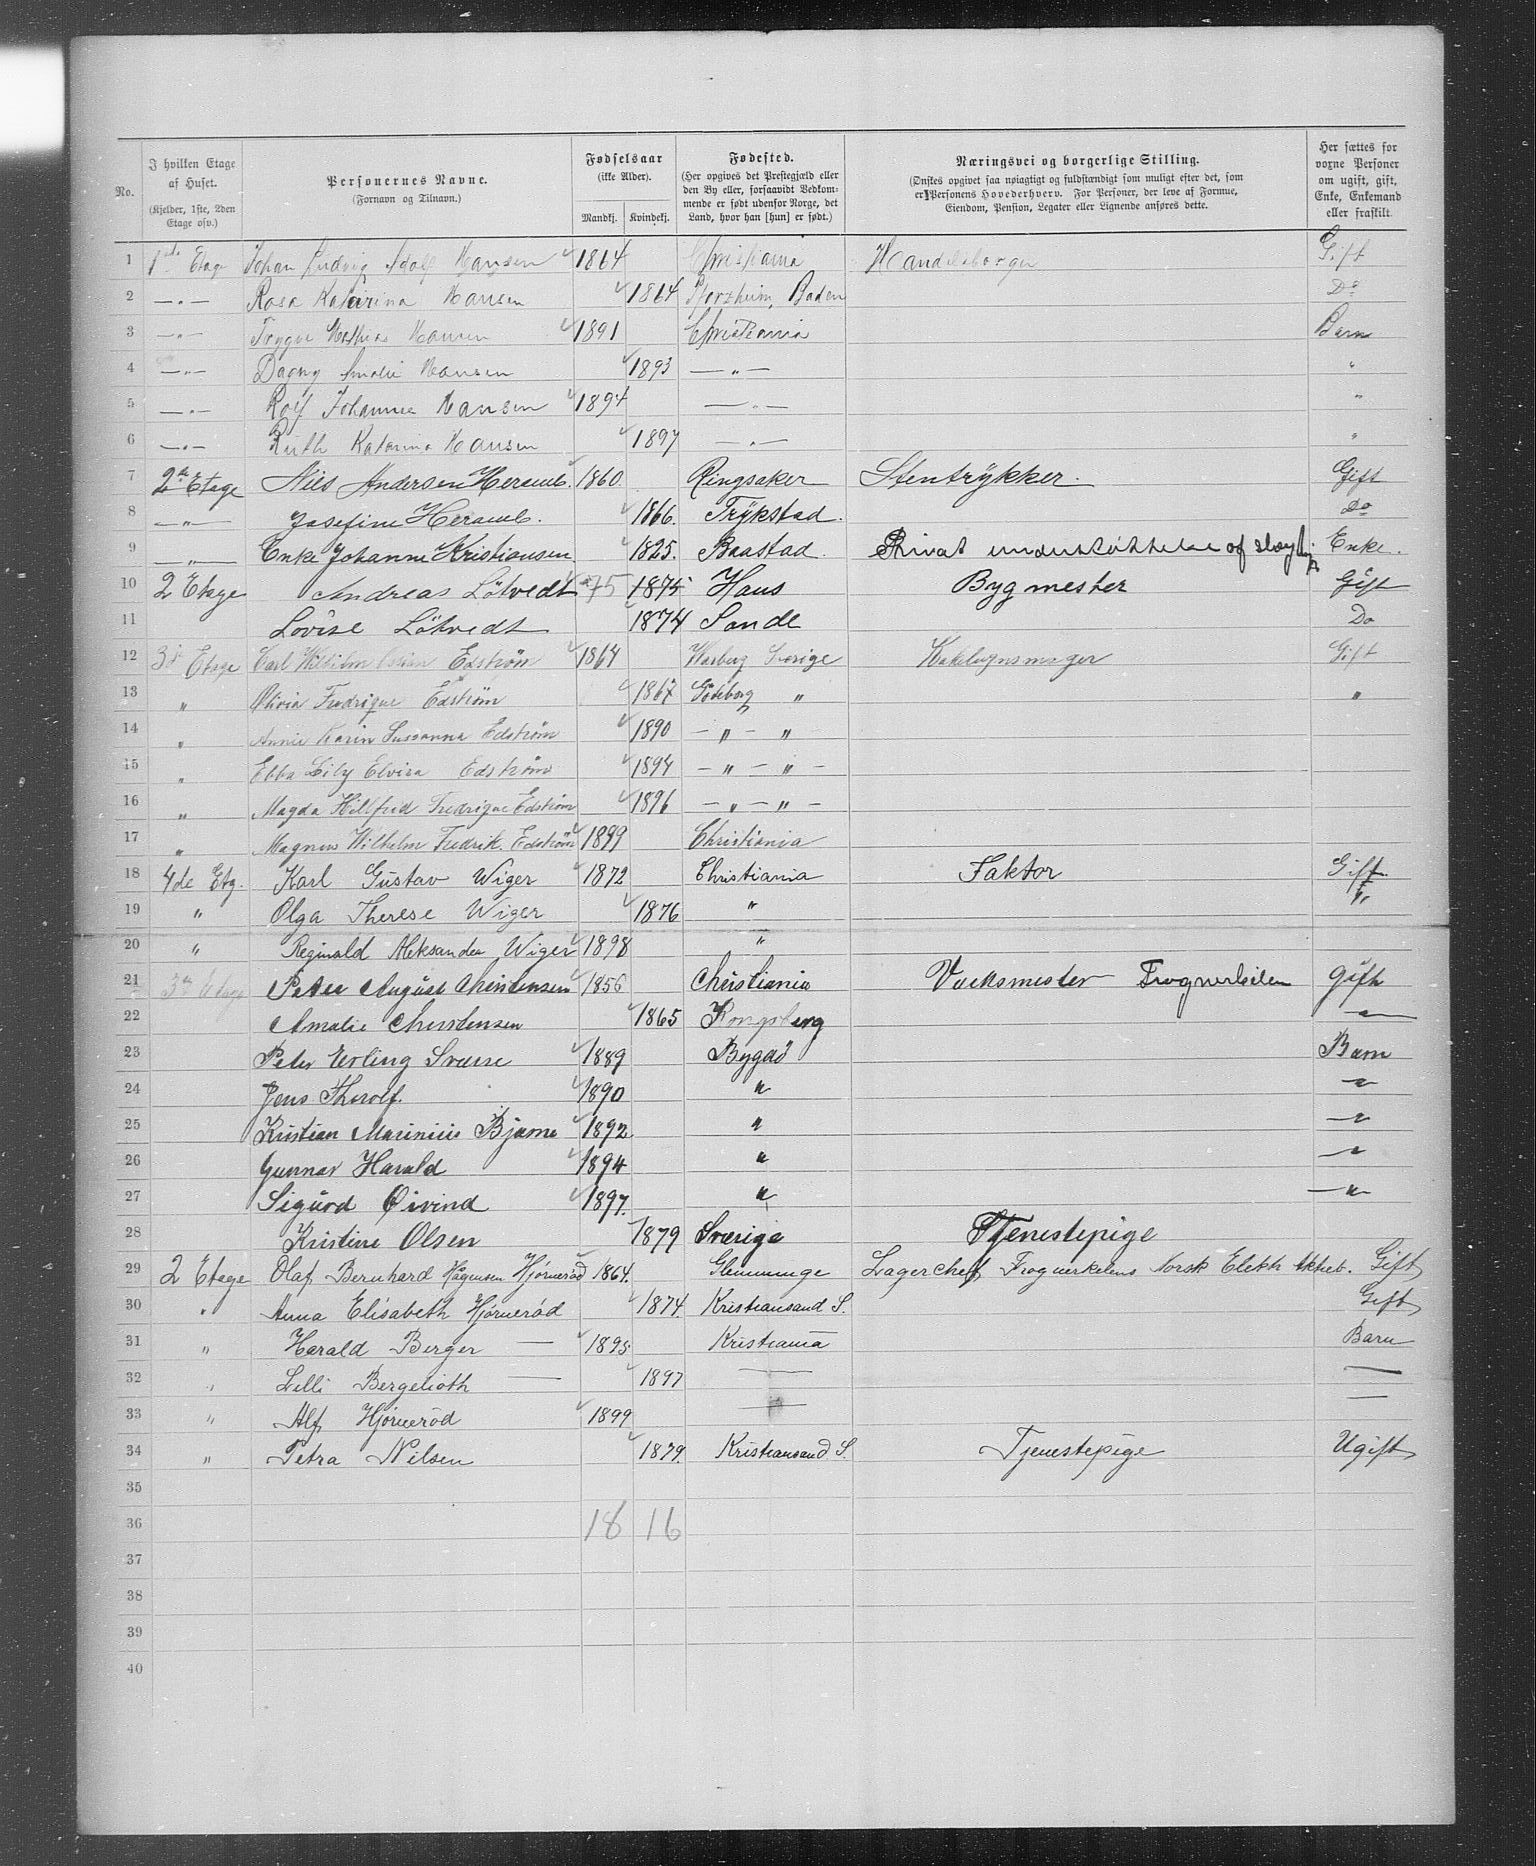 No.
I hvilken Etage af Huset.
(Kjelder, 1ste, 2den Etage osv.)
Personernes Navne.
(Fornavn og Tilnavn.)
Fødselsaar
(ikke Alder).
Mandkj. Kvindekj.
Fødested.
(Her opgives det Prestegjæld eller den By eller, forsaavidt Bedkommende er født udenfor Norge, det Land, hvor han [hun] er født.)
Næringsvei og borgerlige Stilling.
(Ønskes opgivet saa nøiagtigt og fuldstændigt som muligt efter det, som er Personens Hovederhverv. For Personer, der leve af Formue, Eiendom, Pension, Legater eller Lignende anføres dette.
Her sættes for voxne Personer om ugift, gift, Enke, Enkemand eller fraskilt.
1 1ste Etage Johan Ludvig Adolf Hansen 1864 Christiania Handelsborger Gift
2 — „ — Rosa Katarina Hansen 1864 Pforzheim, Baden Do
3 — „ — Trygve Mathias Hansen 1891 Christiania Barn
4 — „ — Dagny Amalie Hansen 1893 — „ — "
5 — „ — Rolf Johannes Hansen 1894 — „ — "
6 — „ — Ruth Katarina Hansen 1897 — „ — "
7 2de Etage Nils Andersen Heramb. 1860. Ringsaker Stentrykker. Gift
8 — „ — Josefine Heramb. 1866. Trykstad. Do
9 — „ — Enke Johanne Kristiansen 1825. Baastad. Privat understøttelse af Enke.
10 2 Etage Andreas Lötvedt 75 1875 Haus Bygmester Gift
11 Lovise Lötvedt 1874 Sande Do
12 3de Etage Carl Wilhelm Edström 1864 Warberg Sverige Kakelugnsmager Gift
13 „ Olivia Fredrique Edström 1867 Göteborg „ „
14 „ Annie Karin Susanna Edström 1890 — „ — „
15 „ Ebba Lily Elvira Edström 1894 — „ — „ —
16 „ Magda Hillfred Fredrique Edström 1896 — „ — „ —
17 „ Magnus Wilhelm Fredrik. Edström 1899 Christiania
18 4de Etg. Karl Gustav Wiger 1872 Christiania Faktor Gift.
19 " Olga Therese Wiger 1876 " "
20 " Reginald Aleksander Wiger 1898 "
21 3de Etage Peter August Christensen 1856 Christiania Værksmester Frognerkilen Gift
22 Amalie Christensen 1865 Kongsberg — " —
23 Peter Erling Sverre 1889 Bygdö Barn
24 Jens Thorolf. 1890 " — "
25 Kristian Marinius Bjarne 1892 " — "
26 Gunnar Harald 1894 " — "
27 Sigurd Öivind 1897. " — "
28 Kristine Olsen 1879 Sverige Tjenestepige
29 2 Etage Olaf Bernhard Hagensen Hjörneröd 1864. Glemminge Lagerchef Frognerkilens Norsk Elekth Aktieb. Gift
30 " Anna Elisabeth Hjörneröd 1874. Kristiansand S. Gift
31 " Harald Berger — 1895. Kristiania Barn
32 " Lilli Bergelioth — 1897 — —
33 " Alf Hjörneröd 1899 — —
34 " Petra Nilsen 1879. Kristiansand S. Tjenestepige Ugift
35
36 18 16
37
38
39
40